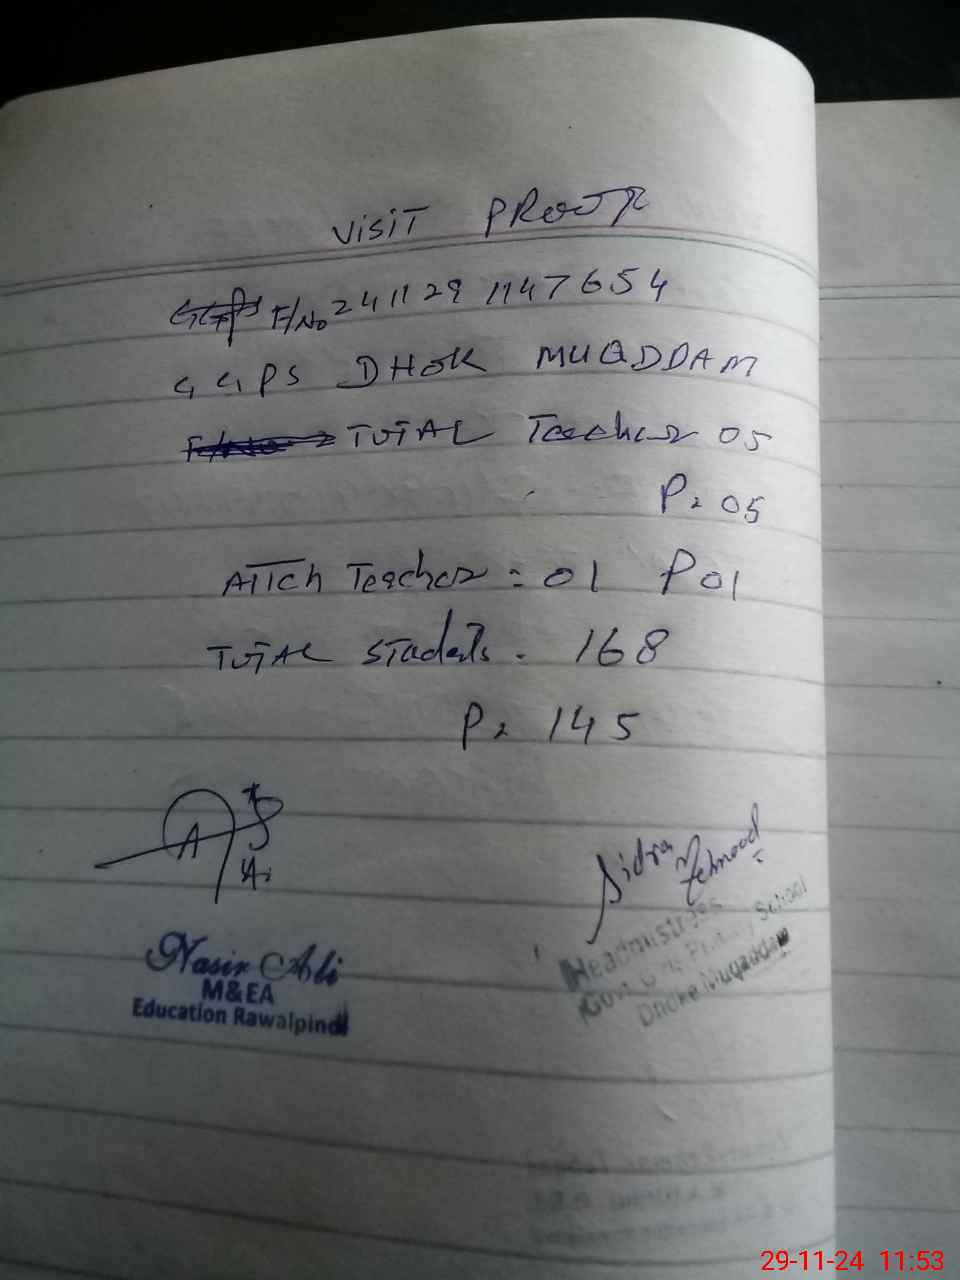 VISIT PROOF
F/No 241129 1147654
GGPS DHOK MUQADDAM
TOTAL Teacher 05
P = 05
ATTCh Teacher = 01 P 01
TOTAL Students = 168
P = 145
Sidra Mehmood
Headmistress
Govt Girls Primary School
Dhoke Muqaddam
Nasir Ali
M&EA
Education Rawalpindi
29-11-24 11:53